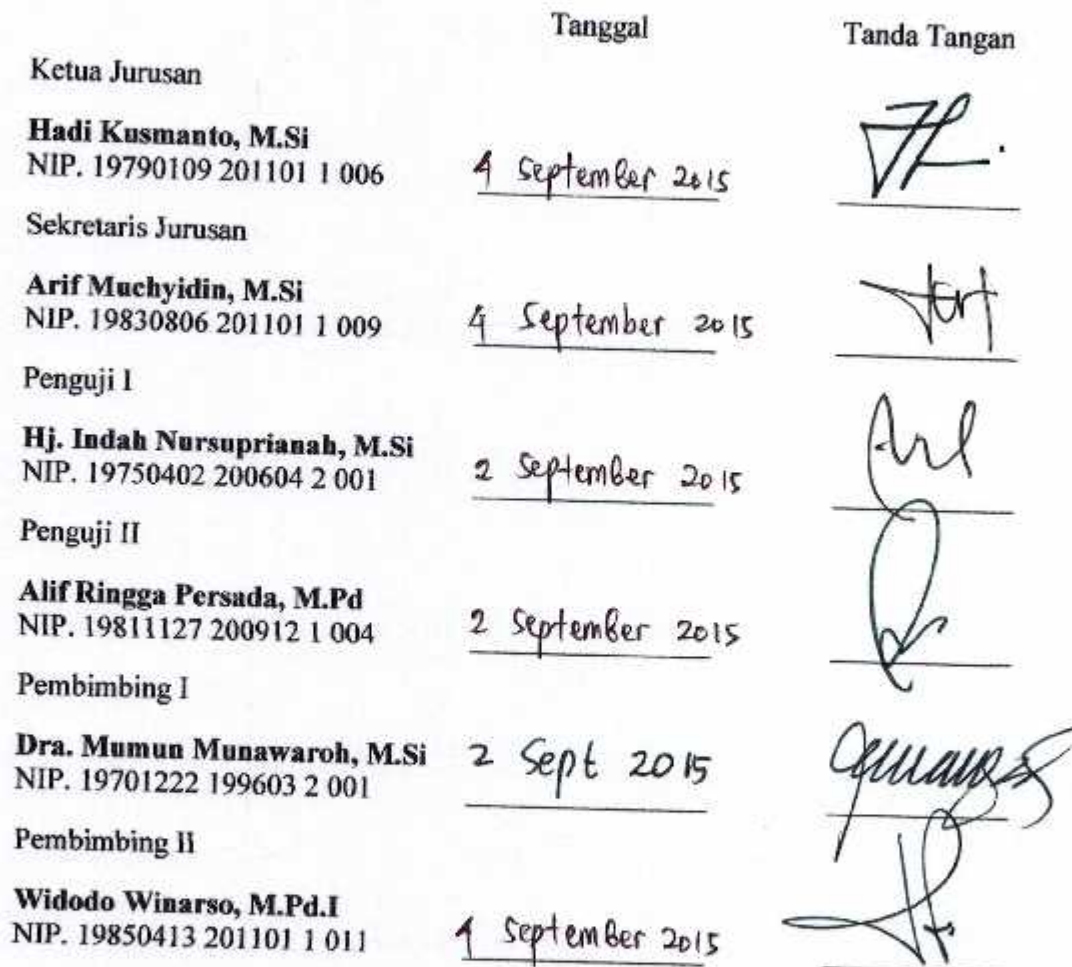 Tanggal Tanda Tangan
Ketua Jurusan
Hadi Kusmanto, M.Si
NIP. 19790109 201101 1 006 4 September 2015
Sekretaris Jurusan
Arif Muchyidin, M.Si
NIP. 19830806 201101 1 009 4 September 2015
Penguji I
Hj. Indah Nursuprianah, M.Si
NIP. 19750402 200604 2 001 2 September 2015
Penguji II
Alif Ringga Persada, M.Pd
NIP. 19811127 200912 1 004 2 September 2015
Pembimbing I
Dra. Mumun Munawaroh, M.Si 2 Sept 2015
NIP. 19701222 199603 2 001
Pembimbing II
Widodo Winarso, M.Pd.I
NIP. 19850413 201101 1 011 4 September 2015